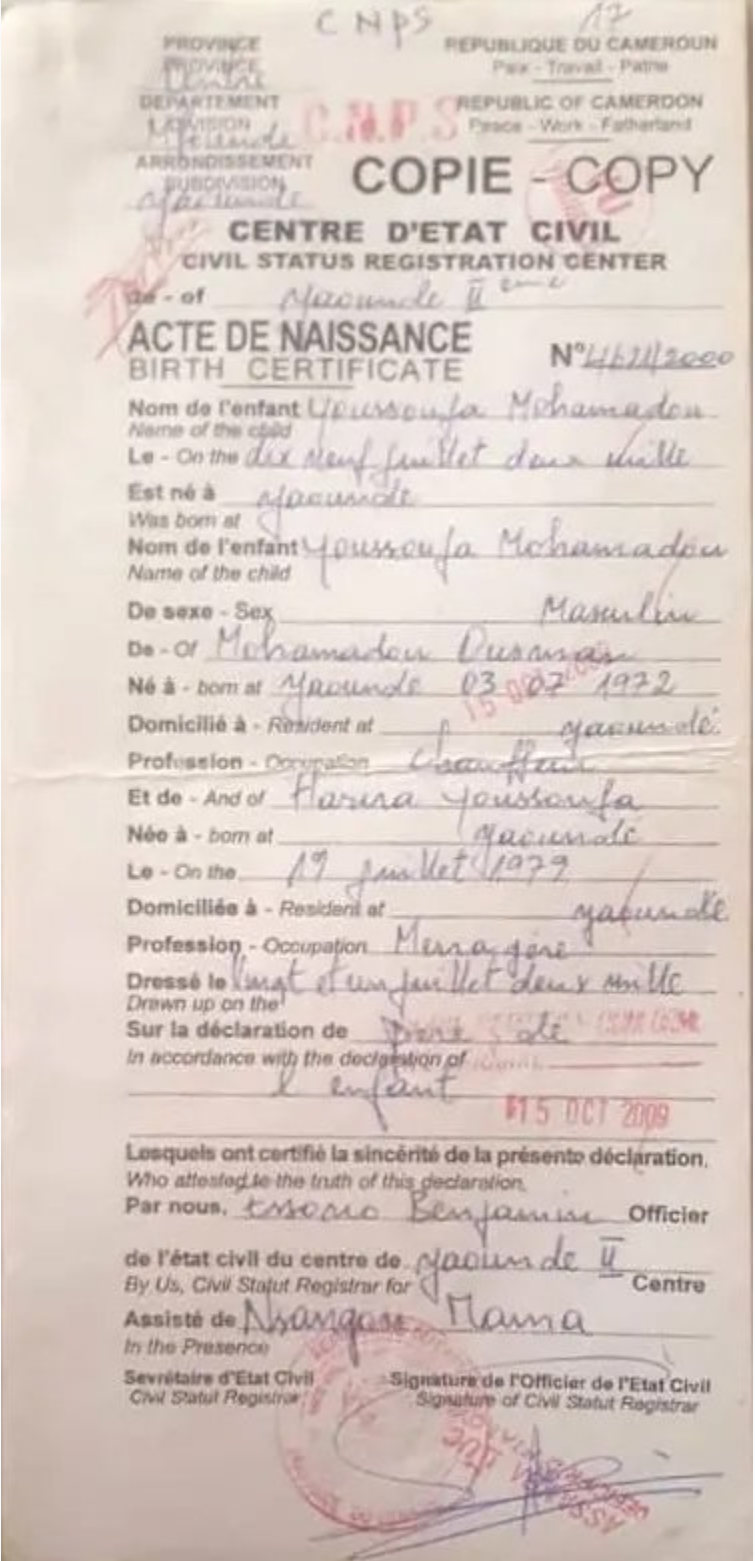 CNPS 17
PROVINCE
PROVINCE
Centre
DEPARTEMENT
DIVISION
ARRONDISSEMENT
SUBDIVISION
Yaounde
REPUBLIQUE DU CAMEROUN
Paix - Travail - Patrie
REPUBLIC OF CAMEROON
Peace - Work - Fatherland
C.N.P.S
COPIE - COPY
CENTRE D'ETAT CIVIL
CIVIL STATUS REGISTRATION CENTER
de - of Yaounde II eme
ACTE DE NAISSANCE
BIRTH CERTIFICATE
N° /2000
Nom de l'enfant Youssoufa Mohamadou
Name of the child
Le - On the dix neuf juillet deux mille
Est né à Yaounde
Was born at
Nom de l'enfant Youssoufa Mohamadou
Name of the child
De sexe - Sex Masculin
De - Of Mohamadou Ousman
Né à - born at Yaounde 03 07 1972
Domicilié à - Resident at Yaoundé
Profession - Occupation Chauffeur
Et de - And of Harira Youssoufa
Née à - born at Yaoundé
Le - On the 19 juillet 1979
Domiciliée à - Resident at Yaoundé
Profession - Occupation Menagère
Dressé le Vingt et un juillet deux mille
Drawn up on the
Sur la déclaration de Père de
In accordance with the declaration of
l'enfant
15 OCT 2009
Lesquels ont certifié la sincérité de la présente déclaration,
Who attested to the truth of this declaration.
Par nous, Essono Benjamin Officier
de l'état civil du centre de Yaounde II
By Us, Civil Statut Registrar for Centre
Assisté de Nsangou Mama
In the Presence
Sevrétaire d'Etat Civil
Civil Statut Registrar
Signature de l'Officier de l'Etat Civil
Signature of Civil Statut Registrar